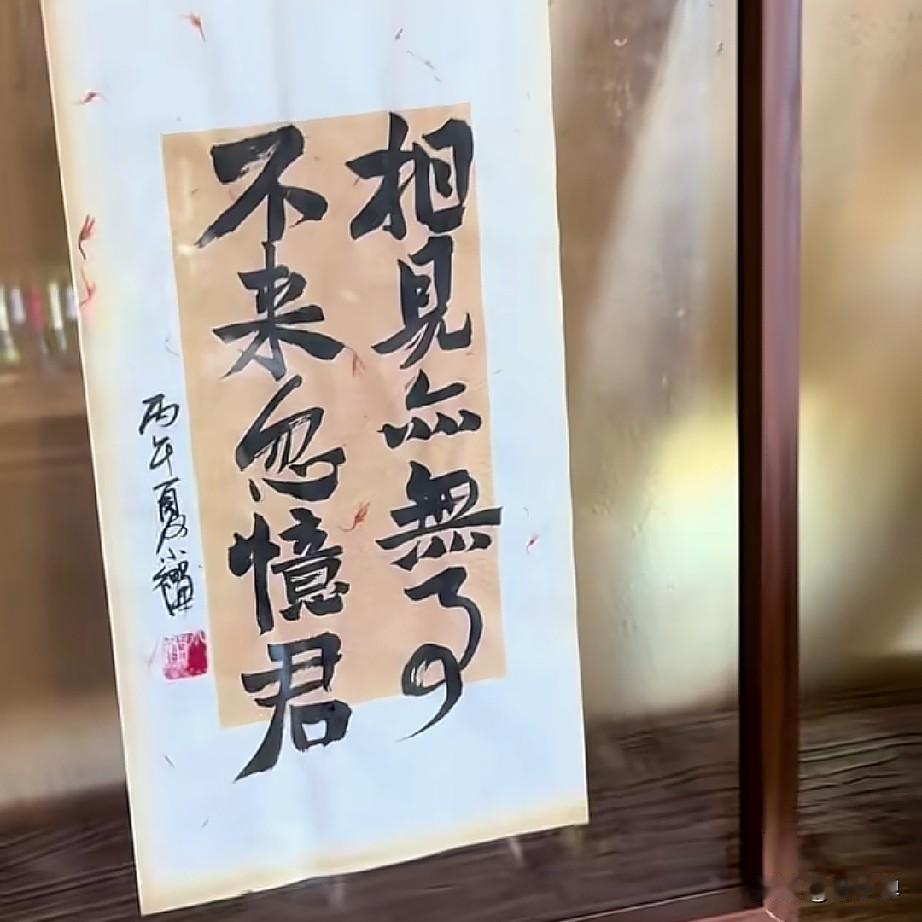 相見亦無事
不来忽憶君
丙午夏小